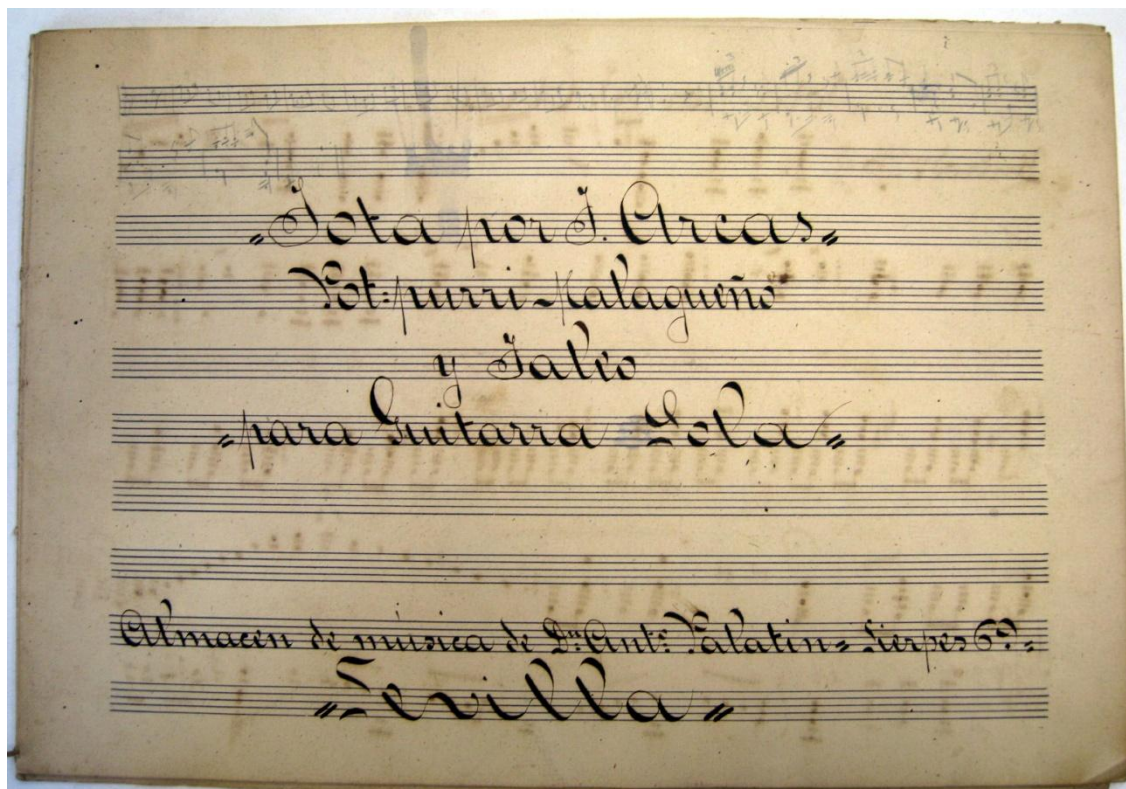 "Jota por J. Arcas"
Pot=purri Malagueño
y Jaleo
=para Guitarra Sola=
Almacén de música de Dn. Anto. Palatin= Sierpes
=Sevilla=